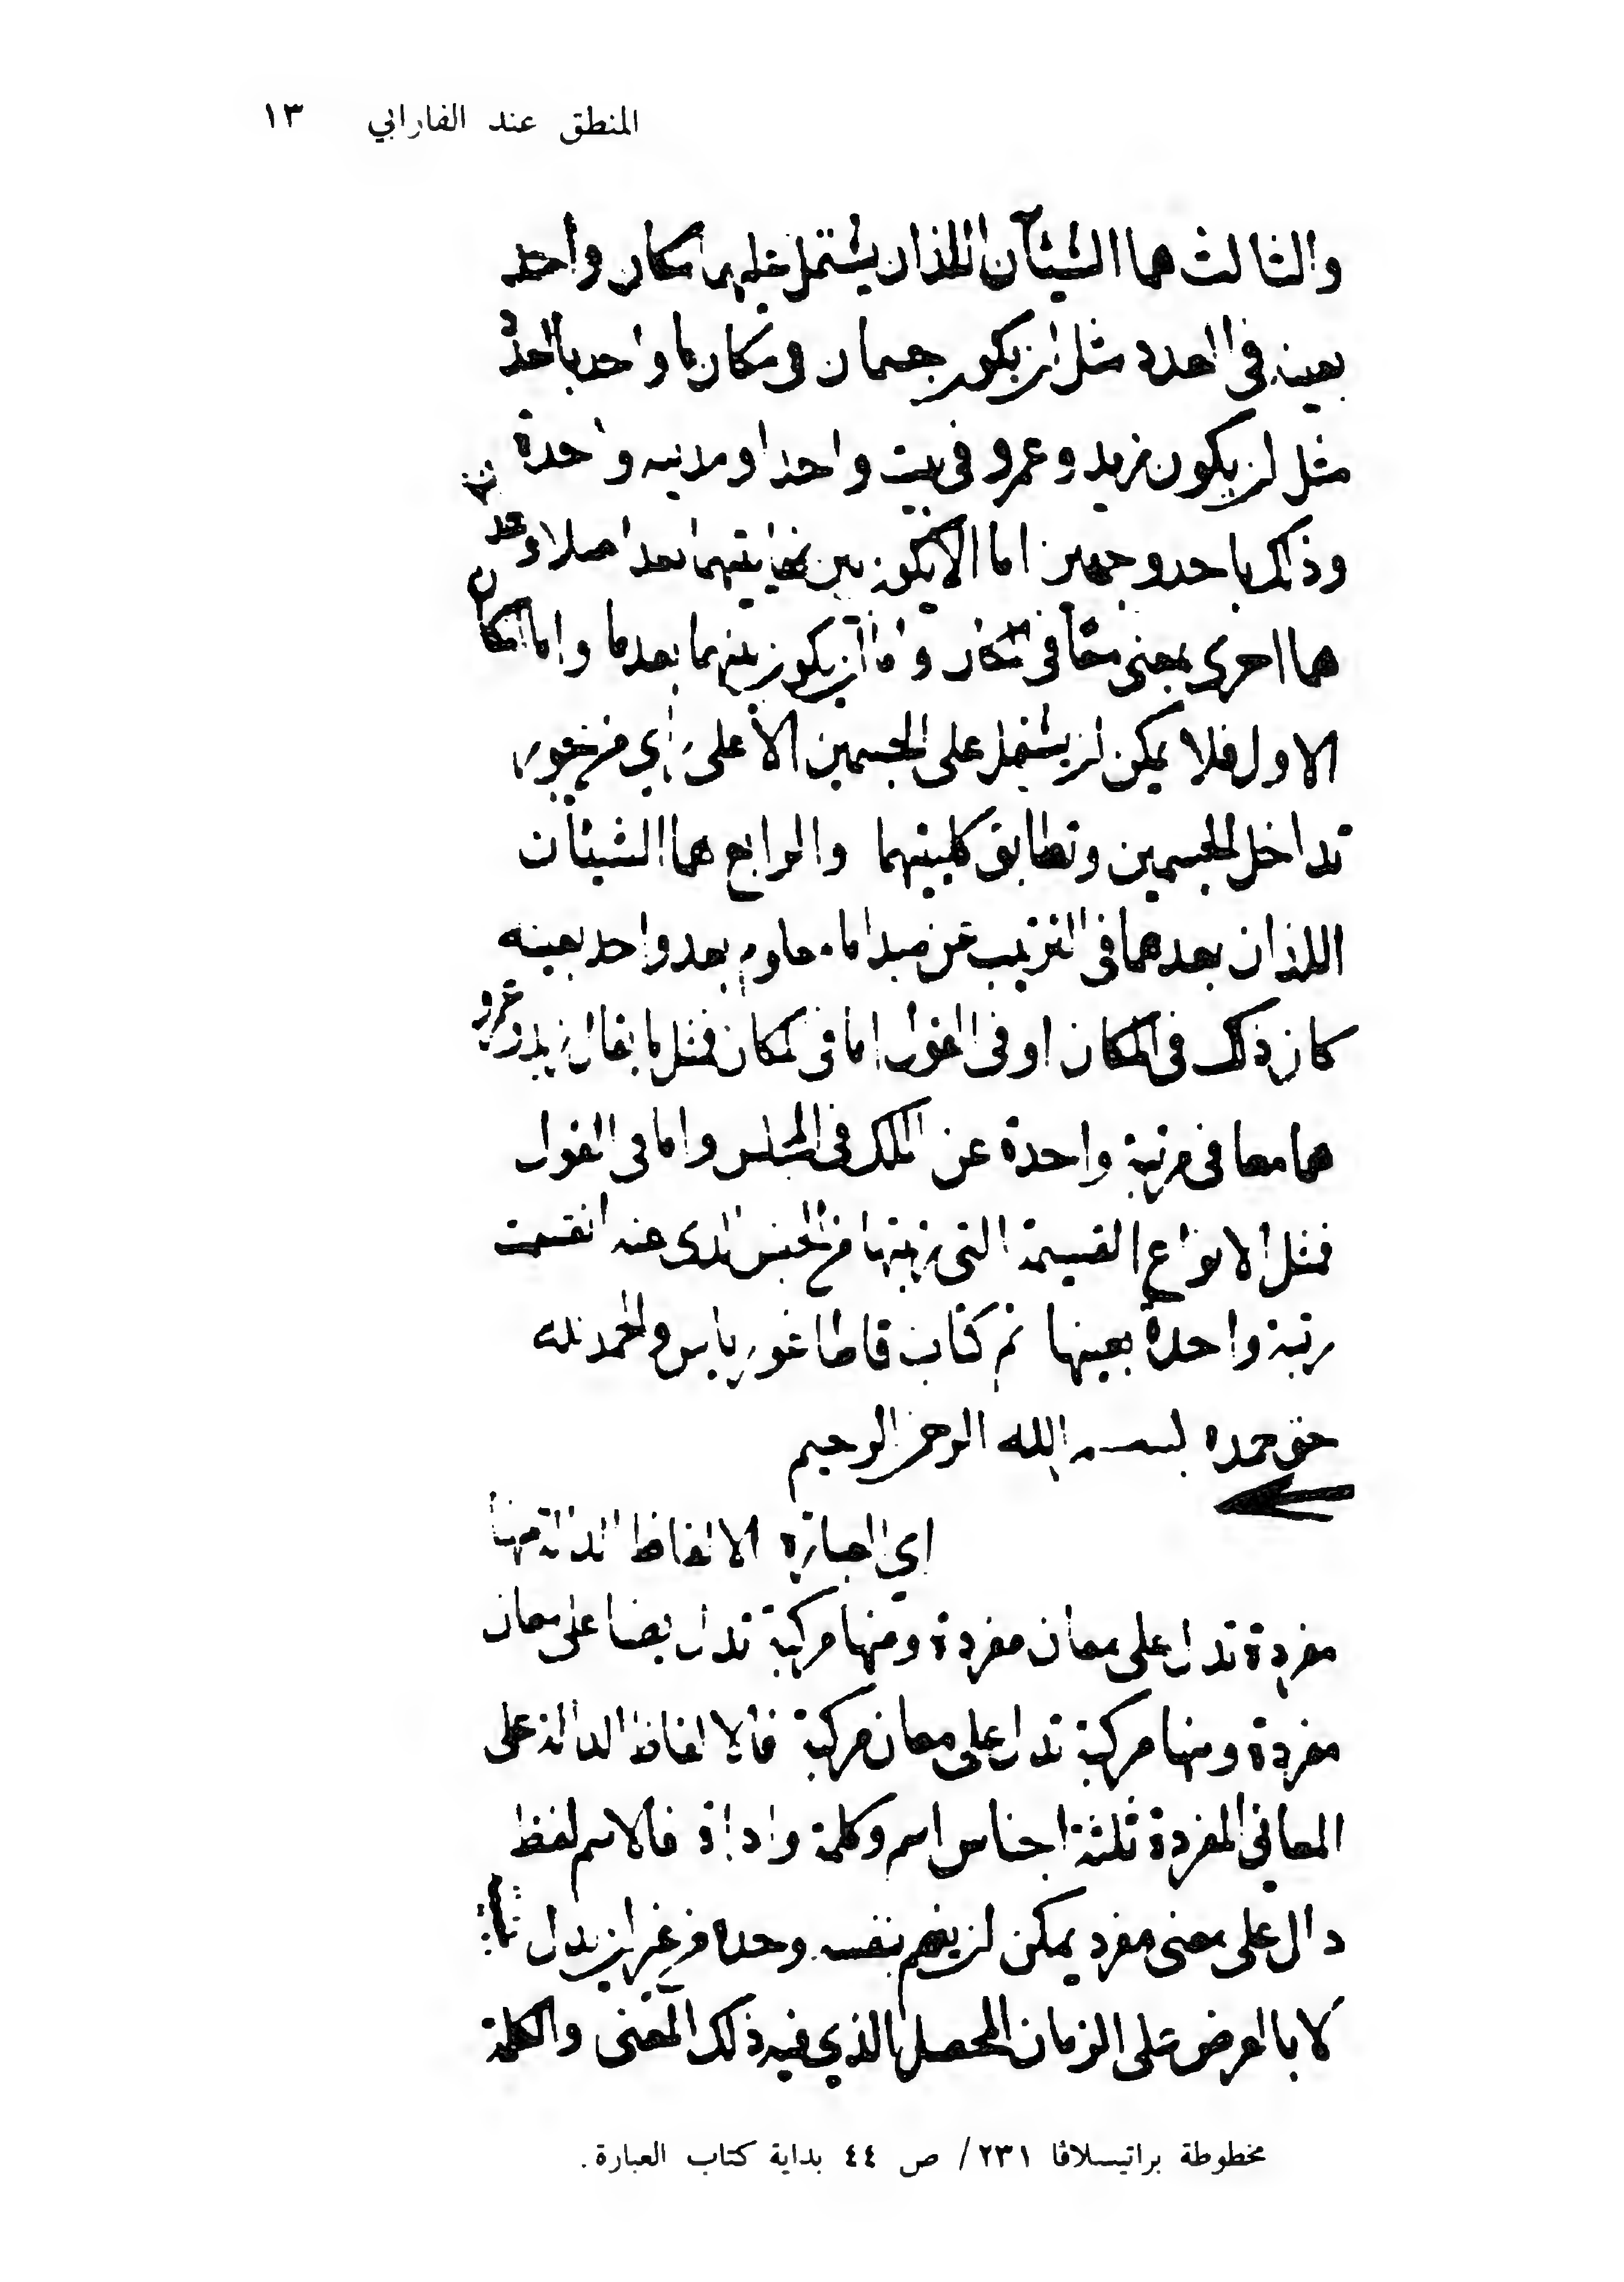 المنطق عند الفارابي ١٣
والثالث هما الشيئان اللذان يشتمل عليهما مكان واحد
بعينه فى العدد مثل ان يكون جسمان فى مكان ما واحد بالعدد
مثل ان يكون زيد وعمرو فى بيت واحد او مدينه واحدة
وذلك باحد وجهين اما الا يكون بين نهايتيهما بعد اصلا
هما احرى بمعنى معا فى المكان واما ان يكون بينهما بعد ما واما المكان
الاول فلا يمكن ان يشتمل على الجسمين الا على راي من يجوز
تداخل الجسمين وتطابق كليتهما والرابع هما الشيئان
اللذان بعدهما فى الترتيب عن مبدا ما معلوم بعد واحد بعينه
كان ذلك فى المكان او فى القول اما فى المكان فمثل ما يقال زيد وعمرو
هما معا فى مرتبة واحدة عن الملك فى المجلس واما فى القول
فمثل الانواع القسيمة التى رتبتها من الجنس الذى عنه انقسمت
رتبة واحدة بعينها تم كتاب قاطاغورياس والحمد لله
حق حمده بسم الله الرحمن الرحيم
اي العبارة الالفاظ الدالة منها
مفردة تدل على معان مفردة ومنها مركبة تدل ايضا على معان
مفردة ومنها مركبة تدل على معان مركبة فالالفاظ الدالة على
المعاني المفردة ثلثة اجناس اسم وكلمة واداة فالاسم لفظ
دال على معنى مفرد يمكن ان يفهم بنفسه وحده من غير ان يدل
لا بالعرض على الزمان المحصل الذي فيه ذلك المعنى والكلمة
مخطوطة براتيسلاڤا ٢٣١/ ص ٤٤ بداية كتاب العبارة.